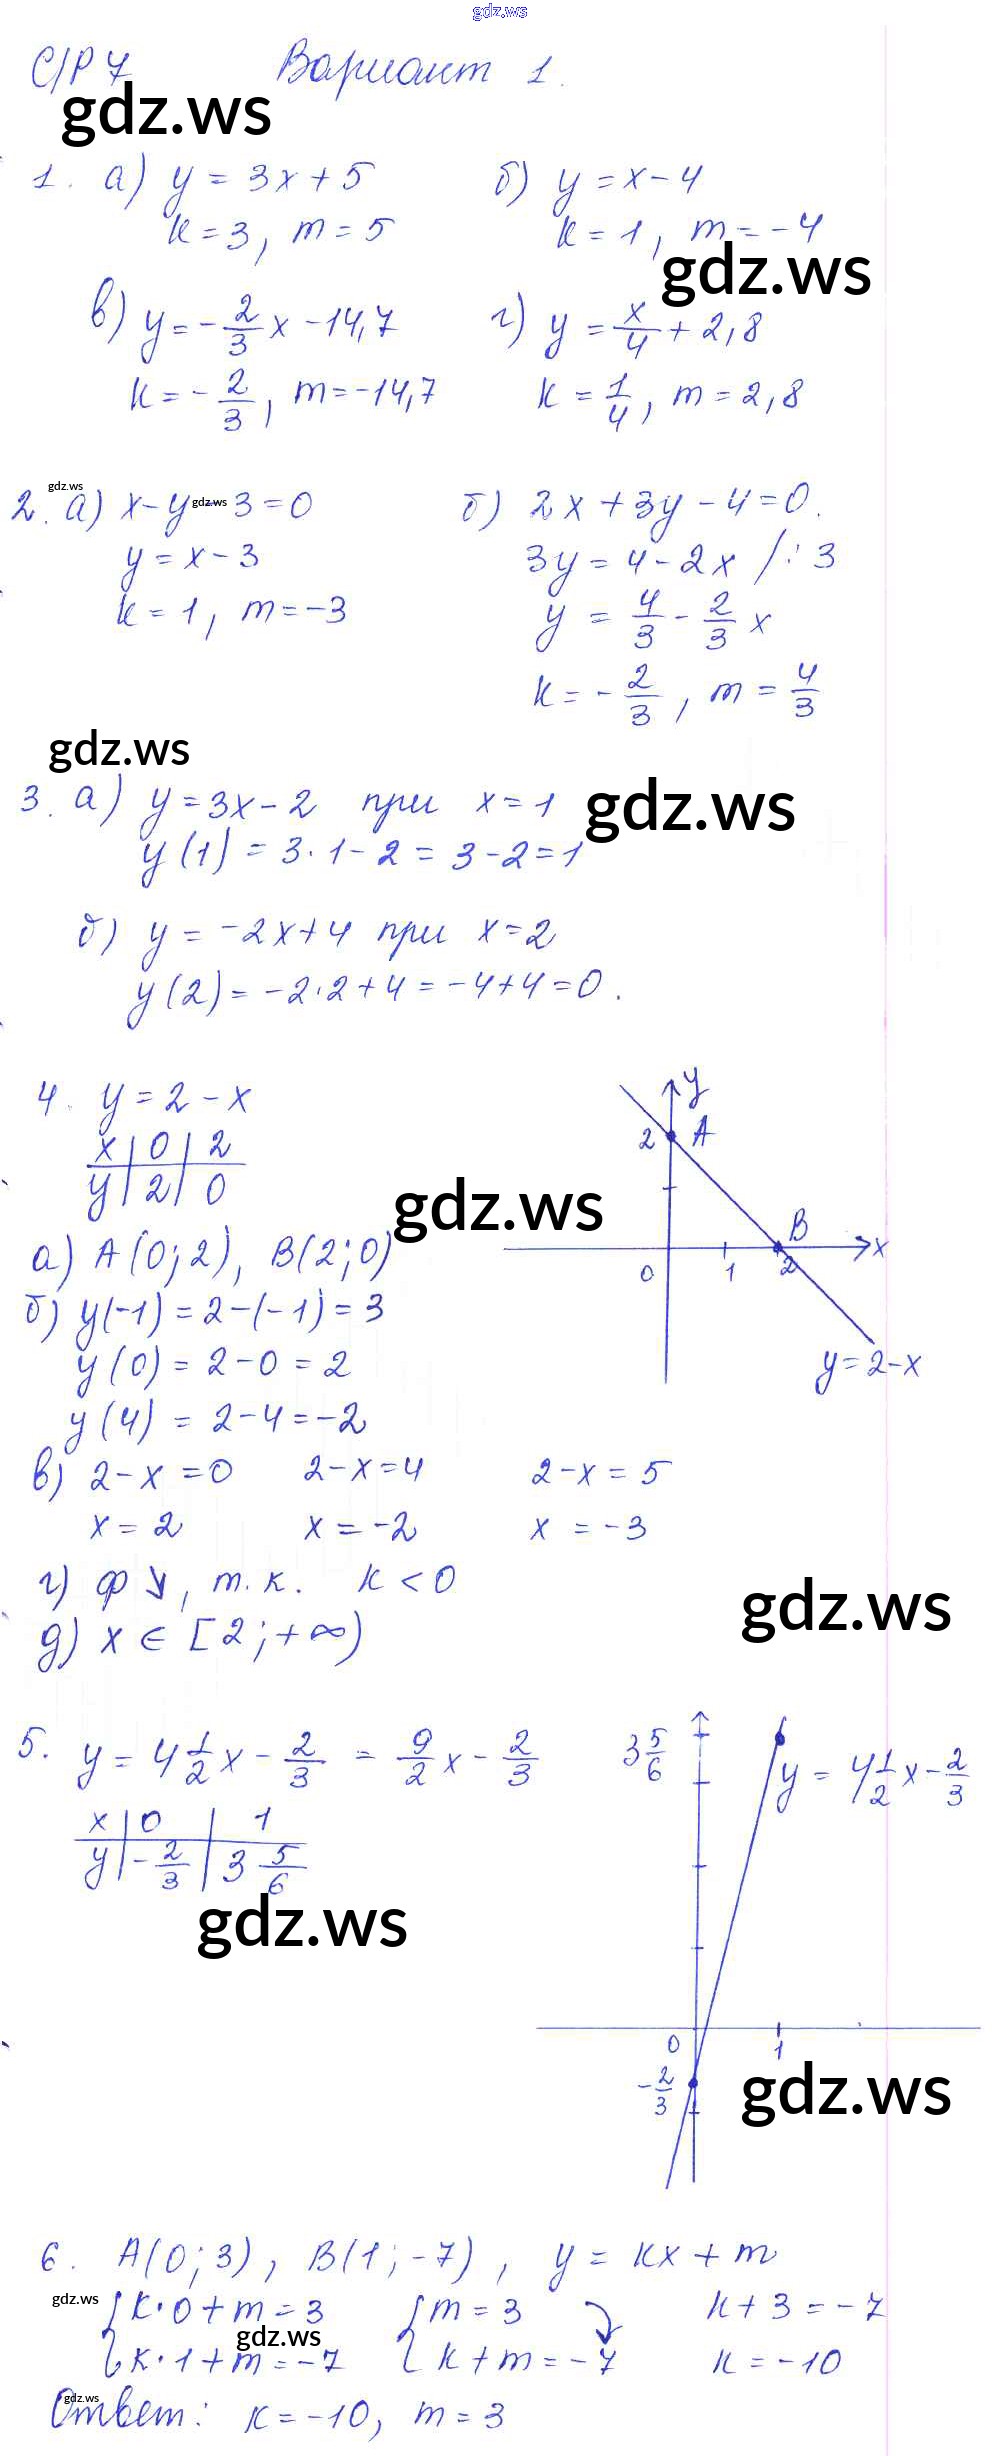 gdz.ws
С/Р 7 Вариант 1.
gdz.ws
1. а) y = 3x + 5 б) y = x - 4
k = 3, m = 5 k = 1, m = -4
gdz.ws
в) y = -2/3 x - 14,7 г) y = x/4 + 2,8
k = -2/3, m = -14,7 k = 1/4, m = 2,8
gdz.ws
2. а) x - y - 3 = 0 б) 2x + 3y - 4 = 0.
gdz.ws
y = x - 3 3y = 4 - 2x /: 3
k = 1, m = -3 y = 4/3 - 2/3 x
k = -2/3, m = 4/3
gdz.ws
3. а) y = 3x - 2 при x = 1
gdz.ws
y(1) = 3·1 - 2 = 3 - 2 = 1
б) y = -2x + 4 при x = 2
y(2) = -2·2 + 4 = -4 + 4 = 0.
4. y = 2 - x
x | 0 | 2
y | 2 | 0
y
2 A
B
0 1 2 x
y = 2 - x
gdz.ws
а) A(0; 2), B(2; 0)
б) y(-1) = 2 - (-1) = 3
y(0) = 2 - 0 = 2
y(4) = 2 - 4 = -2
в) 2 - x = 0 2 - x = 4 2 - x = 5
x = 2 x = -2 x = -3
г) ф ↘, т.к. k < 0
gdz.ws
д) x ∈ [2; +∞)
5. y = 4 1/2 x - 2/3 = 9/2 x - 2/3
x | 0 | 1
y | -2/3 | 3 5/6
3 5/6
y = 4 1/2 x - 2/3
gdz.ws
0 1
-2/3
gdz.ws
6. A(0; 3), B(1; -7), y = kx + m
gdz.ws
{ k·0 + m = 3 { m = 3 k + 3 = -7
gdz.ws
{ k·1 + m = -7 { k + m = -7 k = -10
gdz.ws
Ответ: k = -10, m = 3